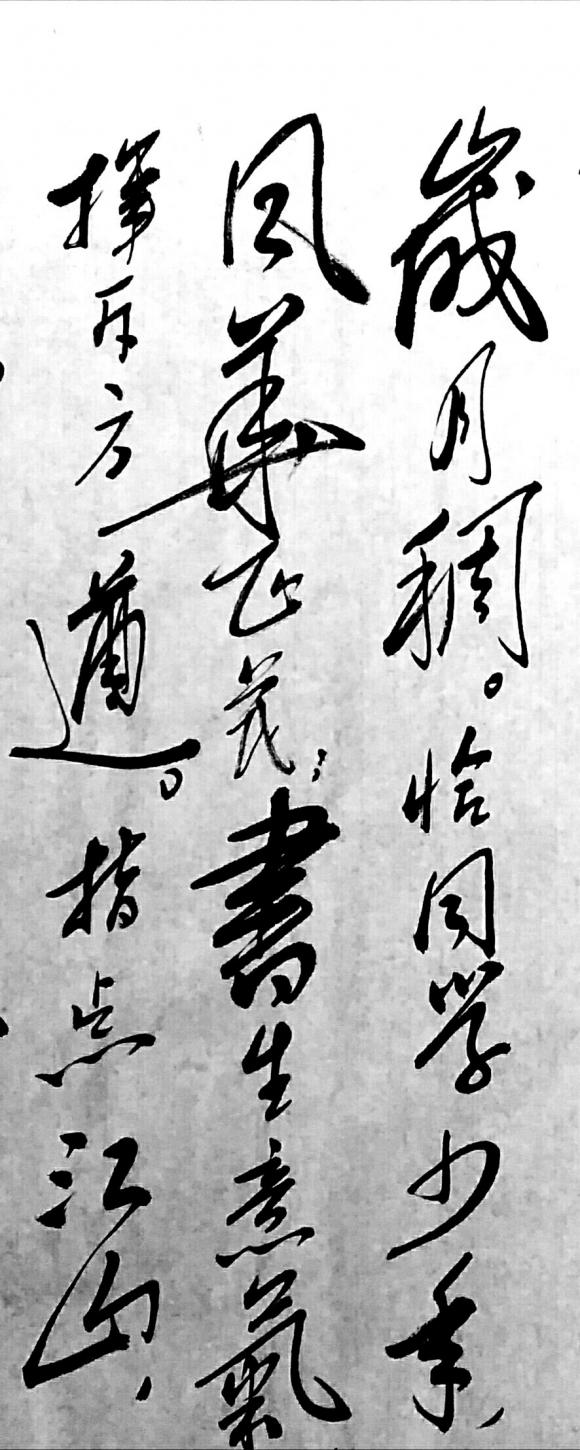 歲月稠。恰同學少年,
风華正茂;書生意氣
揮斥方遒。指点江山,